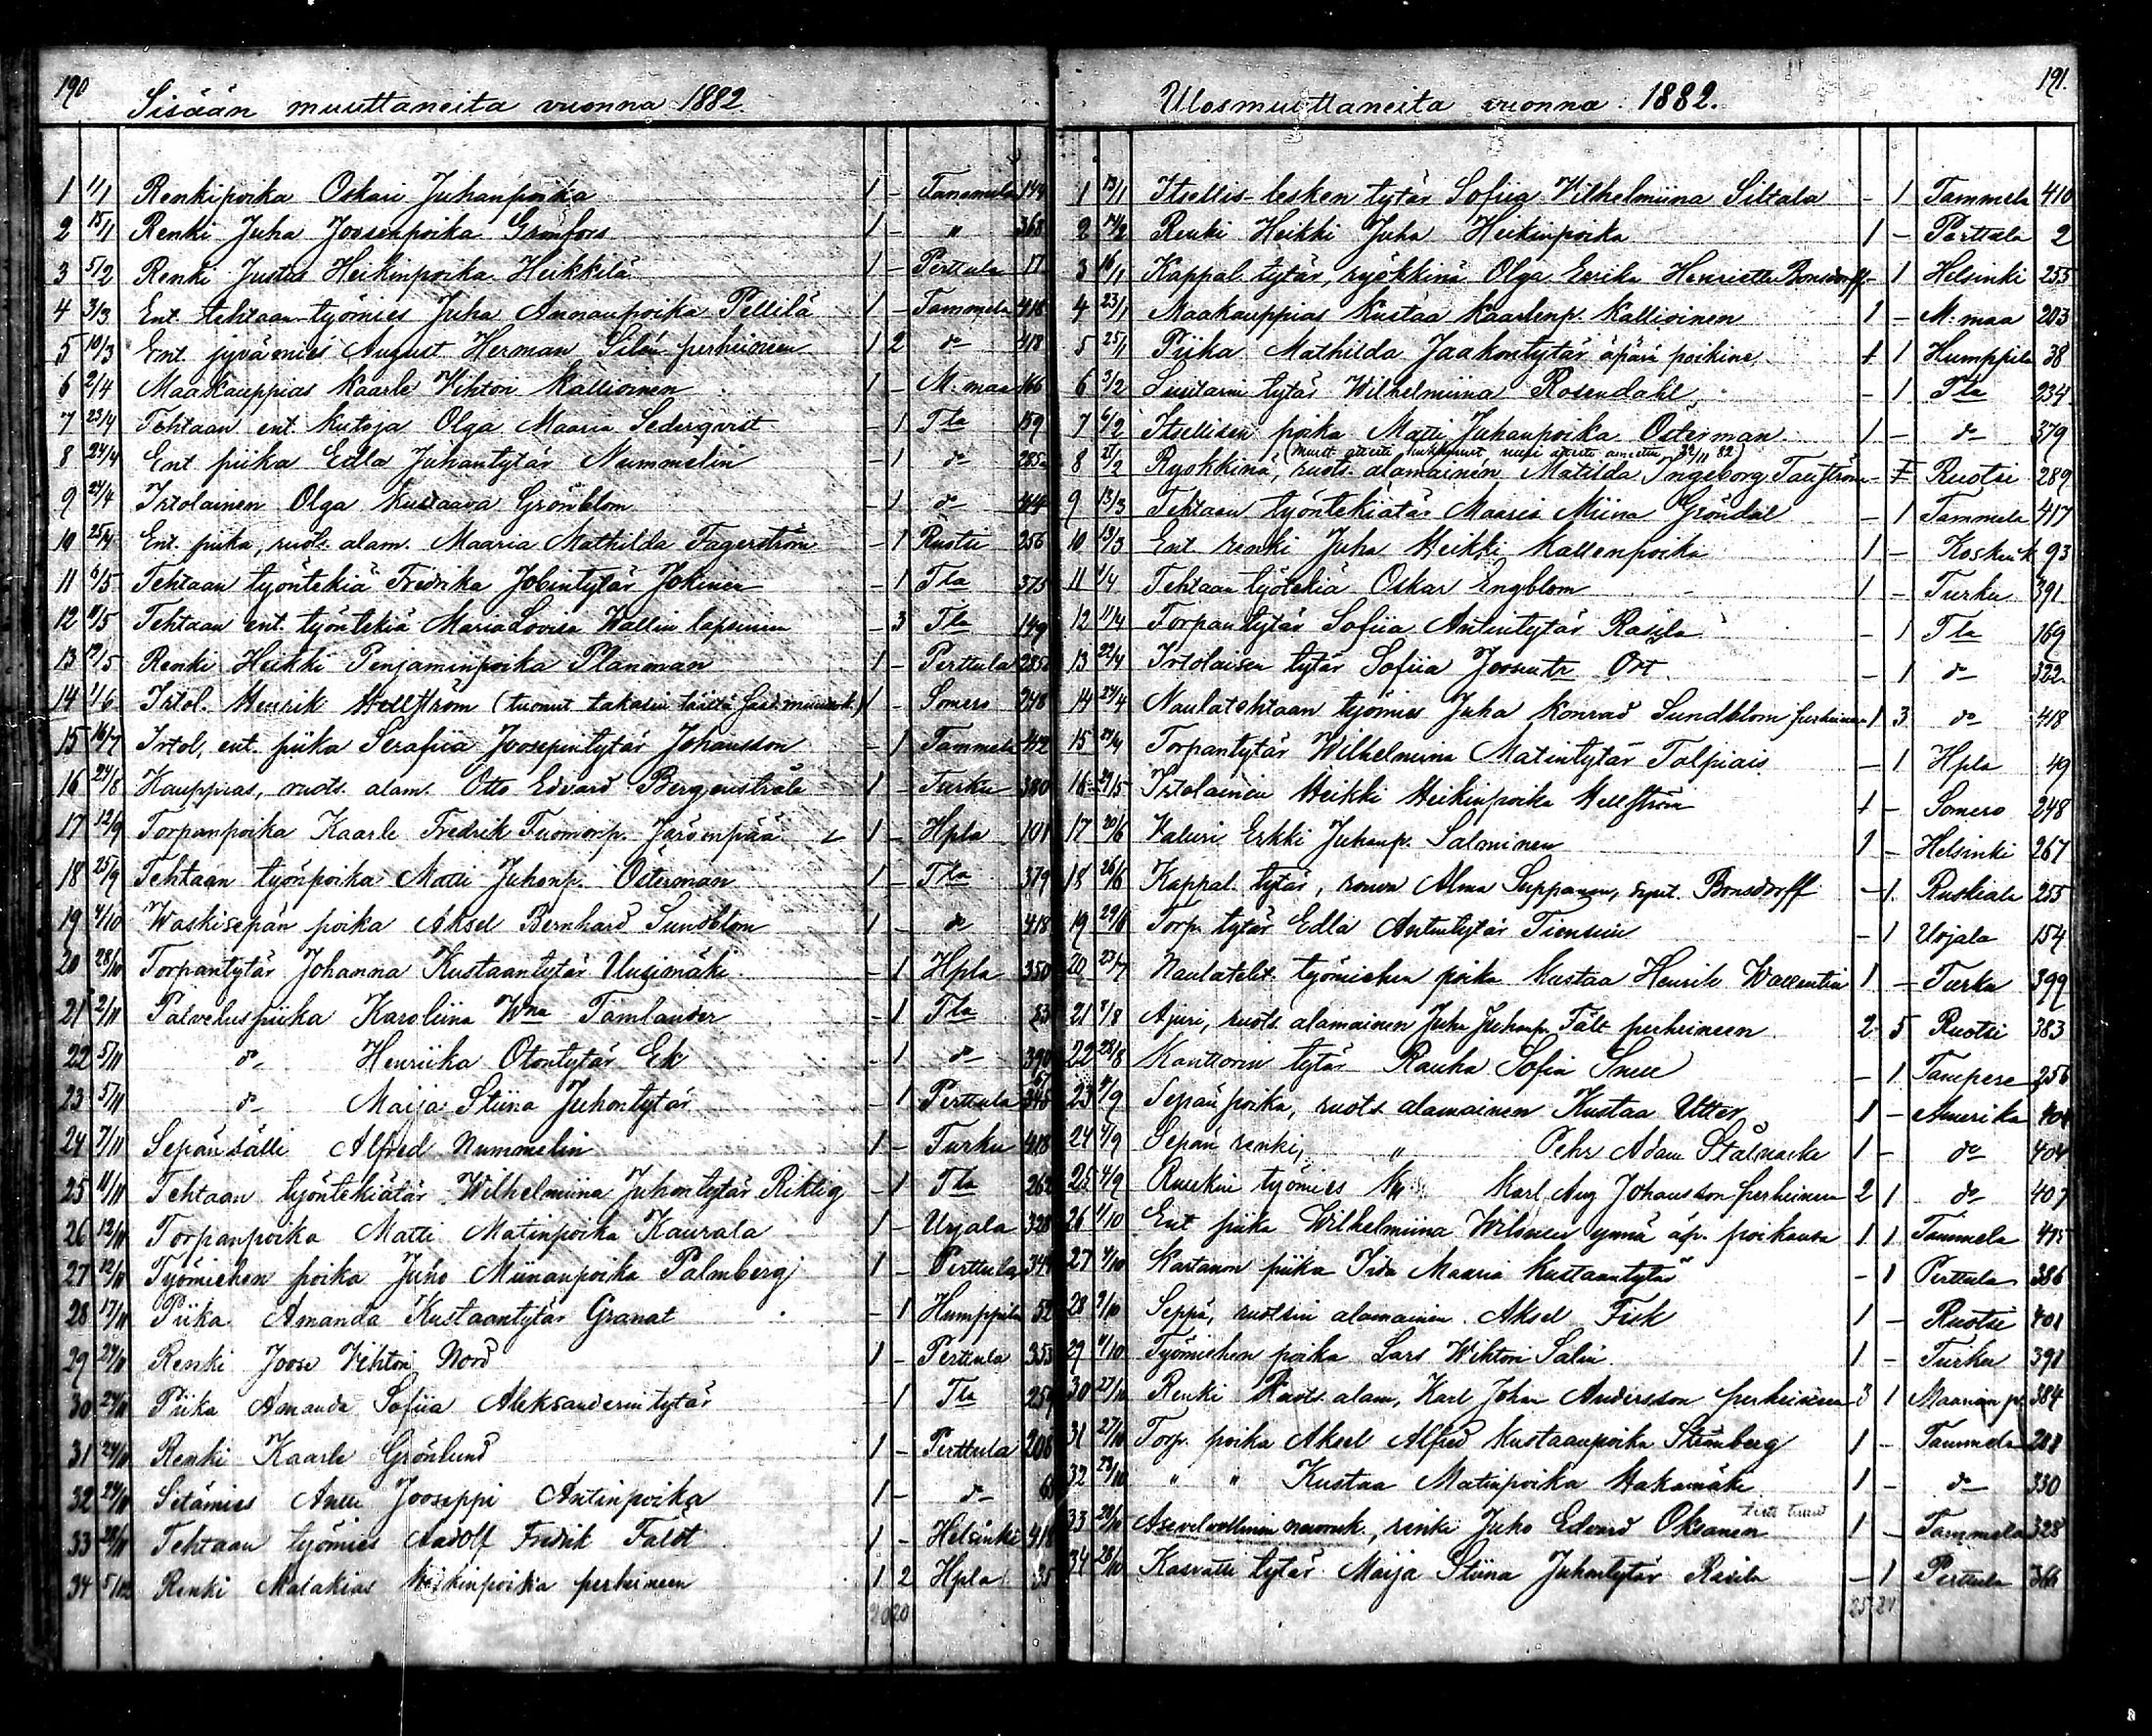 190
Sisään muuttaneita vuonna 1882
1 1/1 Renkipoika Oskari Juhanpoika 1 - Tammela 144
2 15/1 Renki Juha Joosenpoika Grönfors 1 - " 368
3 5/2 Renki Justus Heikinpoika Heikkilä 1 - Perttula 17
4 3/3 Ent. tehtaan työmies Juha Annanpoika Pellilä 1 - Tammela 418
5 10/3 Ent. jyvämies August Herman Silén perheineen 1 2 do 418
6 2/4 Maakauppias Kaarle Vihtori Kallioinen 1 - M:maa 166
7 23/4 Tehtaan ent. kutoja Olga Maaria Sederqvist - 1 Tla 159
8 24/4 Ent piika Edla Juhantytär Nummelin - 1 do 285
9 24/4 Irtolainen Olga Kustaava Grönblom - 1 do 414
10 25/4 Ent. piika, ruots. alam. Maaria Mathilda Fagerström - 1 Ruotsi 256
11 6/5 Tehtaan työntekiä Fredrika Jobintytär Jokinen - 1 Tla 375
12 11/5 Tehtaan ent. työntekiä Maria Lovisa Wallin lapsineen - 3 Tla 149
13 12/5 Renki Heikki Penjaminpoika Planman 1 - Perttula 285
14 1/6 Irtol. Henrik Hellström (tuonut takasin täältä muuttok.) 1 - Somero 248
15 16/7 Irtol, ent. piika Serafiia Joosepintytär Johansson - 1 Tammela 412
16 24/8 Kauppias, ruots. alam. Otto Edvard Bergenstråle 1 - Turku 380
17 12/9 Torpanpoika Kaarle Fredrik Tuomonp. Järvenpää 1 - Hpla 101
18 25/9 Tehtaan työnpoika Matti Juhanp. Österman 1 - Tla 379
19 4/10 Waskisepän poika Aksel Bernhard Sundblom 1 - do 418
20 28/10 Torpantytär Johanna Kustaantytär Uusimäki - 1 Hpla 350
21 2/11 Palveluspiika Karoliina Wna Tamlander - 1 Tla 83
22 5/11 do Henriika Otontytär Ek - 1 do 390
23 5/11 do Maija Stiina Juhontytär - 1 Perttula 67
24 7/11 Sepänsälli Alfred Nummelin 1 - Turku 418
25 11/11 Tehtaan työntekiätär Wilhelmiina Juhontytär Riktig - 1 Tla 262
26 12/11 Torpanpoika Matti Matinpoika Kaurala 1 - Urjala 328
27 12/11 Työmiehen poika Juho Miinanpoika Palmberg 1 - Perttula 344
28 17/11 Piika Amanda Kustaantytär Granat - 1 Humppila 52
29 24/11 Renki Joose Vihtori Nord 1 - Perttula 353
30 24/11 Piika Amanda Sofiia Aleksanderintytär - 1 Tla 254
31 24/11 Renki Kaarle Grönlund 1 - Perttula 208
32 24/11 Sitämies Antti Jooseppi Antinpoika 1 - do 6
33 28/11 Tehtaan työmies Aadolf Fredrik Fäldt 1 - Helsinki 418
34 5/12 Renki Malakias Heikinpoika perheineen 1 2 Hpla 35
20 20
191.
Ulosmuuttaneita vuonna 1882.
1 13/1 Itsellis-lesken tytär Sofiia Vilhelmiina Siltala - 1 Tammela 410
2 14/2 Renki Heikki Juha Heikinpoika 1 - Perttula 2
3 16/1 Kappal. tytär, ryökkinä Olga Eerika Henriette Bonsdorff - 1 Helsinki 255
4 23/1 Maakauppias Kustaa Kaarlenp. Kallioinen 1 - M. maa 203
5 25/1 Piika Mathilda Jaakontytär äpärä poikine 1 1 Humppila 38
6 3/2 Suutarin tytär Wilhelmiina Rosendahl - 1 Tla 234
7 6/2 Itsellisen poika Matti Juhanpoika Österman 1 - do 379
8 21/2 Ryökkinä, ruots. alamainen Matilda Ingeborg Tauström - 1 Ruotsi 289
9 13/3 Tehtaan työntekiätär Maaria Miina Gröndal - 1 Tammela 417
10 13/3 Ent renki Juha Heikki Kallenpoika 1 - Koskenk 93
11 1/4 Tehtaan työtekiä Oskar Engblom 1 - Turku 391
12 11/4 Torpantytär Sofiia Antintytär Rasila - 1 Tla 169
13 22/4 Irtolaisen tytär Sofiia Joosentr Ort - 1 do 322
14 24/4 Naulatehtaan työmies Juha Konrad Sundblom perheineen 1 3 do 418
15 24/4 Torpantytär Wilhelmiina Matintytär Talpiais - 1 Hpla 49
16 29/5 Irtolainen Heikki Heikinpoika Hellström 1 - Somero 248
17 20/6 Valuri Erkki Juhanp. Salminen 1 - Helsinki 267
18 26/6 Kappal. tytär, rouva Alma Suppanen, synt. Bonsdorff - 1 Ruskiala 255
19 29/6 Torp. tytär Edla Antintytär Tiensuu - 1 Urjala 154
20 23/7 Naulateht. työmiehen poika Kustaa Henrik Wallentin 1 - Turku 399
21 7/8 Ajuri, ruots. alamainen Juha Juhanp. Fält perheineen 2 5 Ruotsi 383
22 28/8 Kanttorin tytär Rauha Sofia Snell - 1 Tampere 256
23 4/9 Sepän poika, ruots alamainen Kustaa Utter 1 - Amerika 404
24 4/9 Sepän renki, " Pehr Adam Stålmarke 1 - do 404
25 4/9 Ruukin työmies " Karl Aug Johansson perheineen 2 1 do 407
26 1/10 Ent piika Wilhelmiina Wilsneen ynnä äp. poikansa 1 1 Tammela 415
27 4/10 Kartanon piika Iida Maaria Kustaantytär - 1 Perttula 386
28 9/10 Seppä, ruotsin alamainen Aksel Fisk 1 - Ruotsi 401
29 11/10 Työmiehen poika Lars Wihtori Salin 1 - Turku 391
30 27/10 Renki Ruots. alam, Karl Johan Andersson perheineen 3 1 Maarian p. 384
31 27/10 Torp. poika Aksel Alfred Kustaanpoika Strömberg 1 - Tammela 288
32 28/10 " " Kustaa Matinpoika Hakamäki 1 - do 330
33 28/10 Asevelvollinen nuoruk., renki Juho Edvard Oksanen 1 - Tammela 328
34 28/10 Kasvatti tytär Maija Stiina Juhantytär Rasila - 1 Perttula 366
25 24